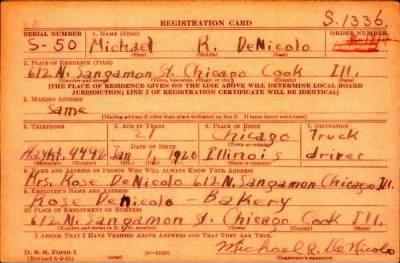 REGISTRATION CARD
S.1336
SERIAL NUMBER 1. NAME (Print) ORDER NUMBER
S-50 Michael R. DeNicolo
(First) (Middle) (Last)
2. PLACE OF RESIDENCE (Print)
612 N. Sangamon St. Chicago Cook Ill.
(Number and street) (Town, township, village, or city) (County) (State)
[THE PLACE OF RESIDENCE GIVEN ON THE LINE ABOVE WILL DETERMINE LOCAL BOARD
JURISDICTION; LINE 2 OF REGISTRATION CERTIFICATE WILL BE IDENTICAL]
3. MAILING ADDRESS
Same
[Mailing address if other than place indicated on line 2. If same insert word same]
4. TELEPHONE 5. AGE IN YEARS 6. PLACE OF BIRTH 7. OCCUPATION
21 Chicago Truck
DATE OF BIRTH
Haykt. 4492 Jan 1 1920 Illinois driver
8. NAME AND ADDRESS OF PERSON WHO WILL ALWAYS KNOW YOUR ADDRESS
Mrs. Rose DeNicolo 612 N. Sangamon Chicago Ill.
9. EMPLOYER'S NAME AND ADDRESS
Rose DeNicolo - Bakery
10. PLACE OF EMPLOYMENT OR BUSINESS
612 N. Sangamon St. Chicago Cook Ill.
(Number and street or R. F. D. number) (Town) (County) (State)
I AFFIRM THAT I HAVE VERIFIED ABOVE ANSWERS AND THAT THEY ARE TRUE.
D. S. S. Form 1
Michael R. DeNicolo
(Registrant's signature)